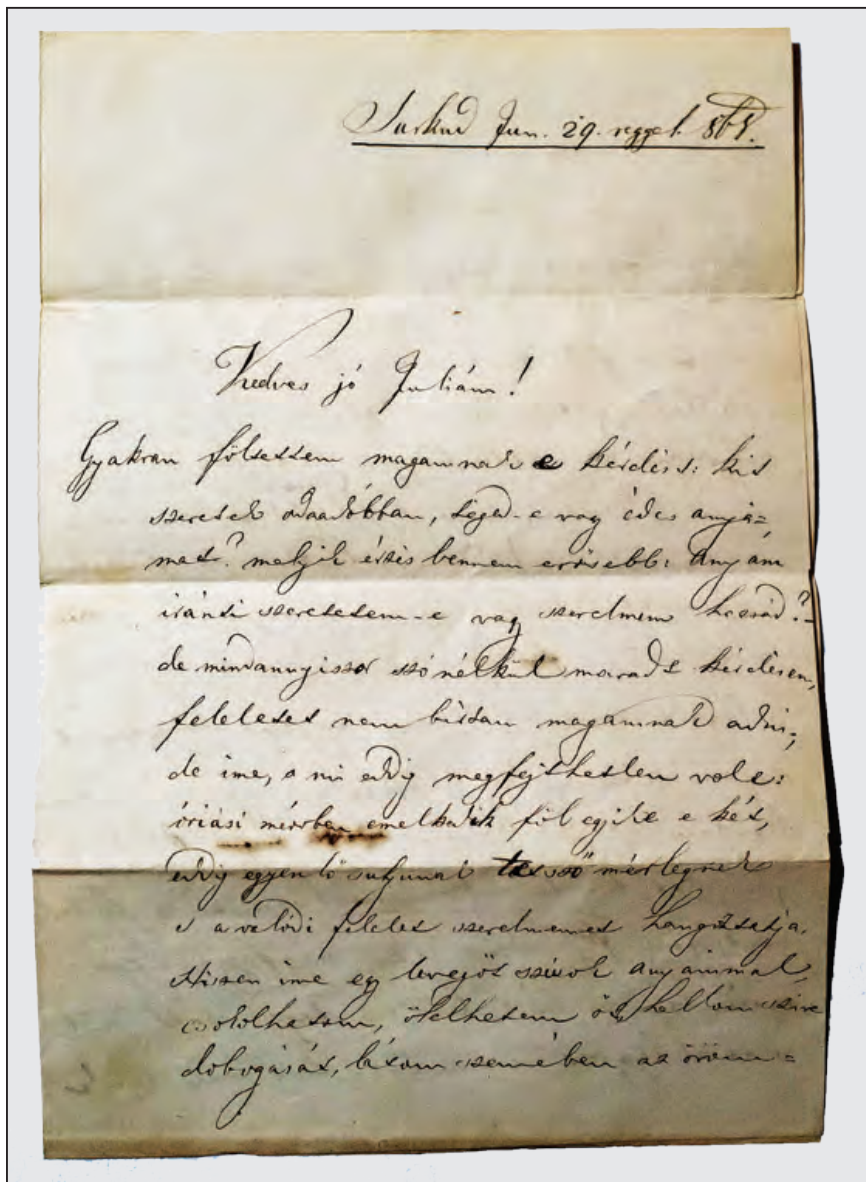 Sarkad Jun. 29. reggel. 865.
Kedves jó Juliám!
Gyakran föltettem magamnak e kérdést: kit
szeretek odaadóbban, téged-e vagy édes anyá=
mat? melyik érzés bennem erősebb: anyám
iránti szeretetem-e vagy szerelmem hozzád?-
de mindannyiszor szó nélkül maradt kérdésem,
feleletet nem bírtam magamnak adni;
de ime, a mi eddig megfejthetlen volt:
óriási mérvben emelkedik föl egyike e két,
eddig egyenlő sulyunak tetsző mérlegnek
s a valódi felelet szerelmemet hangoztatja.
Hiszen ime egy levegőt szívok anyámmal,
csókolhatom, ölelhetem őt, hallom szíve
dobogását, látom szemében az öröm=